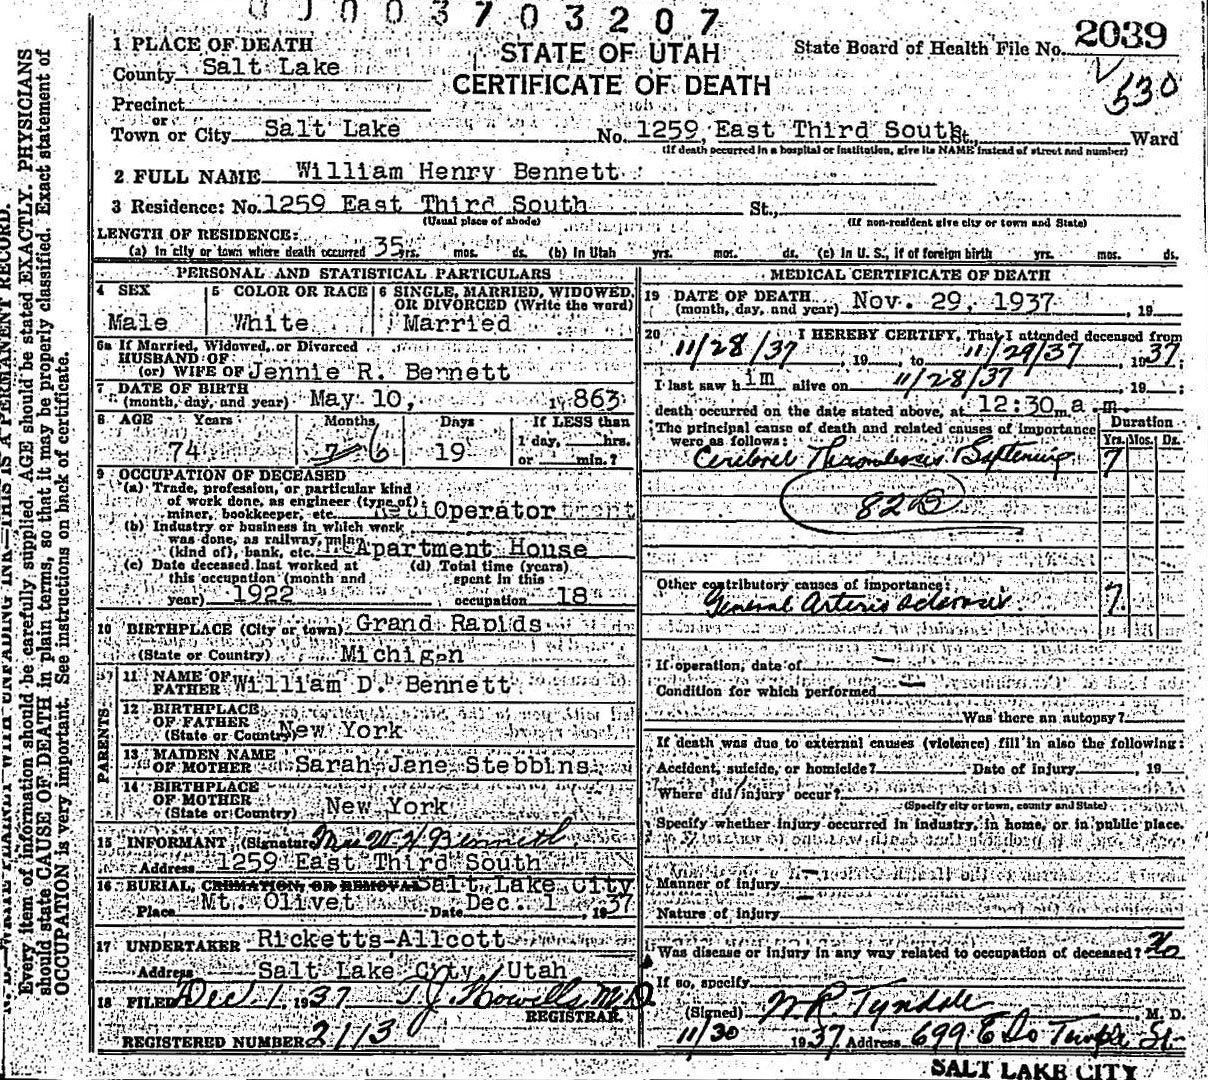 0 0 0 3 7 0 3 2 0 7
STATE OF UTAH
CERTIFICATE OF DEATH
State Board of Health File No. 2039
530
1 PLACE OF DEATH
County Salt Lake
Precinct
or
Town or City Salt Lake No. 1259 East Third South St., Ward
(If death occurred in a hospital or institution, give its NAME instead of street and number)
2 FULL NAME William Henry Bennett
3 Residence: No. 1259 East Third South St.,
(Usual place of abode) (If non-resident give city or town and State)
LENGTH OF RESIDENCE:
(a) In city or town where death occurred 35 yrs. mos. ds. (b) In Utah yrs. mos. ds. (c) In U. S., if of foreign birth yrs. mos. ds.
PERSONAL AND STATISTICAL PARTICULARS
4 SEX
Male
5 COLOR OR RACE
White
6 SINGLE, MARRIED, WIDOWED,
OR DIVORCED (Write the word)
Married
6a If Married, Widowed, or Divorced
HUSBAND OF
(or) WIFE OF Jennie R. Bennett
7 DATE OF BIRTH
(month, day, and year) May 10, 1863
8 AGE Years Months Days If LESS than
1 day, hrs.
74 6 19 or min.?
9 OCCUPATION OF DECEASED
(a) Trade, profession, or particular kind
of work done, as engineer (type of)
miner, bookkeeper, etc. Operator
(b) Industry or business in which work
was done, as railway, mine
(kind of), bank, etc. Apartment House
(c) Date deceased last worked at
this occupation (month and
year) 1922
(d) Total time (years)
spent in this
occupation 18
10 BIRTHPLACE (City or town) Grand Rapids
(State or Country) Michigan
PARENTS
11 NAME OF
FATHER William D. Bennett
12 BIRTHPLACE
OF FATHER
(State or Country) New York
13 MAIDEN NAME
OF MOTHER Sarah Jane Stebbins
14 BIRTHPLACE
OF MOTHER
(State or Country) New York
15 INFORMANT (Signature) Mrs W H Bennett
Address 1259 East Third South
16 BURIAL, CREMATION, OR REMOVAL Salt Lake City
Place Mt. Olivet Date Dec. 1, 1937
17 UNDERTAKER Ricketts-Allcott
Address Salt Lake City, Utah
18 FILED Dec 1, 1937 T. J. Howells M.D.
REGISTRAR.
REGISTERED NUMBER 2113
MEDICAL CERTIFICATE OF DEATH
19 DATE OF DEATH
(month, day, and year) Nov. 29, 1937, 19
20 I HEREBY CERTIFY, That I attended deceased from
11/28/37, 19, to 11/29/37, 1937;
I last saw him alive on 11/28/37, 19 ;
death occurred on the date stated above, at 12:30 m a.m.
The principal cause of death and related causes of importance
were as follows:
Duration
Yrs. Mos. Ds.
Cerebral Thrombosis Softening 7
82B
Other contributory causes of importance:
General Arterio sclerosis 7
If operation, date of —
Condition for which performed —
Was there an autopsy?
If death was due to external causes (violence) fill in also the following:
Accident, suicide, or homicide? Date of injury, 19
Where did injury occur?
(Specify city or town, county and State)
Specify whether injury occurred in industry, in home, or in public place.
Manner of injury —
Nature of injury —
Was disease or injury in any way related to occupation of deceased? No
If so, specify
(Signed) W R Tyndale, M. D.
11/30 1937 Address 699 E So Temple St.
SALT LAKE CITY
N. B.—WRITE PLAINLY WITH UNFADING INK—THIS IS A PERMANENT RECORD.
Every item of information should be carefully supplied. AGE should be stated EXACTLY. PHYSICIANS
should state CAUSE OF DEATH in plain terms, so that it may be properly classified. Exact statement of
OCCUPATION is very important. See instructions on back of certificate.